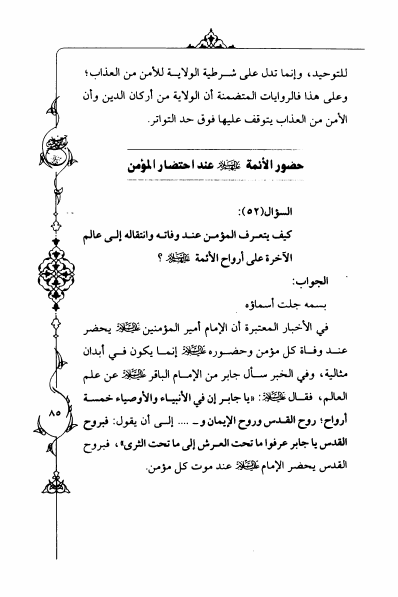 للتوحيد، وإنما تدل على شرطية الولاية للأمن من العذاب؛
وعلى هذا فالروايات المتضمنة أن الولاية من أركان الدين وأن
الأمن من العذاب يتوقف عليها فوق حد التواتر.
حضور الأئمة عند احتضار المؤمن
السؤال(٥٢):
كيف يتعرف المؤمن عند وفاته وانتقاله إلى عالم
الآخرة على أرواح الأئمة ؟
الجواب:
بسمه جلت أسماؤه
في الأخبار المعتبرة أن الإمام أمير المؤمنين يحضر
عند وفاة كل مؤمن وحضوره إنما يكون في أبدان
مثالية، وفي الخبر سأل جابر من الإمام الباقر عن علم
العالم، فقال : «يا جابر إن في الأنبياء والأوصياء خمسة
أرواح؛ روح القدس وروح الإيمان و_ .... إلى أن يقول: فبروح
القدس يا جابر عرفوا ما تحت العرش إلى ما تحت الثرى»، فبروح
القدس يحضر الإمام عند موت كل مؤمن.
٨٥